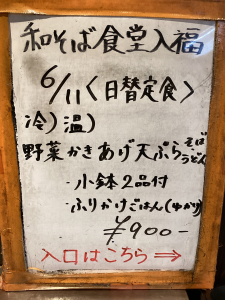 和そば食堂入福
6/11〈日替定食〉
冷)温)
野菜かきあげ天ぷらそばうどん
・小鉢2品付
・ふりかけごはん(ゆかり)
¥900-
入口はこちら⇒